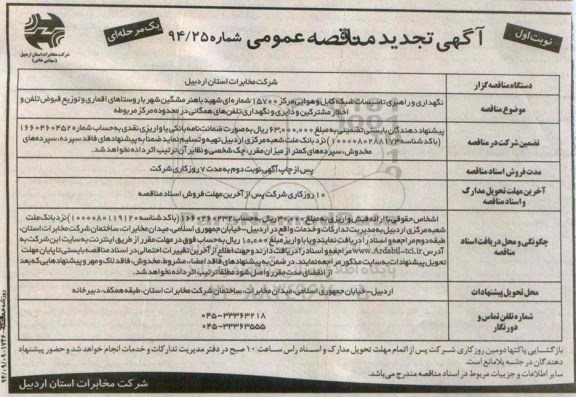 نوبت اول
آگهی تجدید مناقصه عمومی شماره ۹۴/۲۵
یک مرحله‌ای
شرکت مخابرات استان اردبیل
(سهامی خاص)
دستگاه مناقصه گزار
شرکت مخابرات استان اردبیل
موضوع مناقصه
نگهداری و راهبری تاسیسات شبکه کابل و هوایی مرکز ۱۵۷۰۰ شماره‌ای شهید باهنر مشگین شهر با روستاهای اقماری و توزیع قبوض تلفن و
اخطار مشترکین و دایری و نگهداری تلفن‌های همگانی در محدوده مرکز مربوطه
تضمین شرکت در مناقصه
پیشنهاد دهندگان بایستی تضمینی به مبلغ ۶۳,۰۰۰,۰۰۰ ریال به صورت ضمانت نامه بانکی یا واریز نقدی به حساب شماره ۱۶۶۰۴۶۰۴۵۲
(با کد شناسه ۱۰۰۰۰۸۰۲۸۸۱۷۳) نزد بانک ملت شعبه مرکزی اردبیل تهیه و تسلیم نماید ضمنا به پیشنهادهای فاقد سپرده، سپرده‌های
مخدوش، سپرده‌های کمتر از میزان مقرر، چک شخصی و نظایر آن ترتیب اثر داده نخواهد شد.
مدت فروش اسناد مناقصه
پس از چاپ آگهی نوبت دوم به مدت ۷ روز کاری شرکت
آخرین مهلت تحویل مدارک
و اسناد مناقصه
۱۰ روز کاری شرکت پس از آخرین مهلت فروش اسناد مناقصه
چگونگی و محل دریافت اسناد
مناقصه
اشخاص حقوقی با ارائه فیش واریزی به مبلغ ۳۰۰,۰۰۰ ریال به حساب ۱۶۶۰۲۶۰۲۳۲ (با کد شناسه ۱۰۰۰۰۸۰۱۱۹۱۲۰) نزد بانک ملت
شعبه مرکزی اردبیل به مدیریت تدارکات و خدمات واقع در اردبیل - خیابان جمهوری اسلامی، میدان مخابرات، ساختمان شرکت مخابرات استان،
طبقه دوم مراجعه و اسناد را دریافت نمایند و یا با واریز مبلغ ۱۰,۰۰۰ ریال به حساب فوق در مهلت مقرر از طریق اینترنت به سایت این شرکت به
آدرس www.Ardabil-tci.ir مراجعه و اسناد را دریافت دارند و جهت اطلاع از آخرین تغییرات احتمالی در اسناد مناقصه بایستی تا پایان مهلت
تحویل پیشنهادات به سایت مذکور مراجعه نمایند. در ضمن به پیشنهادهای فاقد امضاء، مشروط، مخدوش، فاقد لاک و مهر و پیشنهادهایی که بعد
از انقضای مدت مقرر واصل شود مطلقا ترتیب اثر داده نخواهد شد.
محل تحویل پیشنهادات
اردبیل - خیابان جمهوری اسلامی، میدان مخابرات، ساختمان شرکت مخابرات استان، طبقه همکف، دبیرخانه
شماره تلفن تماس و
دورنگار
۰۴۵-۳۳۳۶۳۲۱۸
۰۴۵-۳۳۳۶۳۵۵۵
بازگشایی پاکتها دومین روز کاری شرکت پس از اتمام مهلت تحویل مدارک و اسناد راس ساعت ۱۰ صبح در دفتر مدیریت تدارکات و خدمات انجام خواهد شد و حضور پیشنهاد
دهندگان در جلسه بلامانع است.
سایر اطلاعات و جزییات مربوط در اسناد مناقصه مندرج می‌باشد.
شرکت مخابرات استان اردبیل